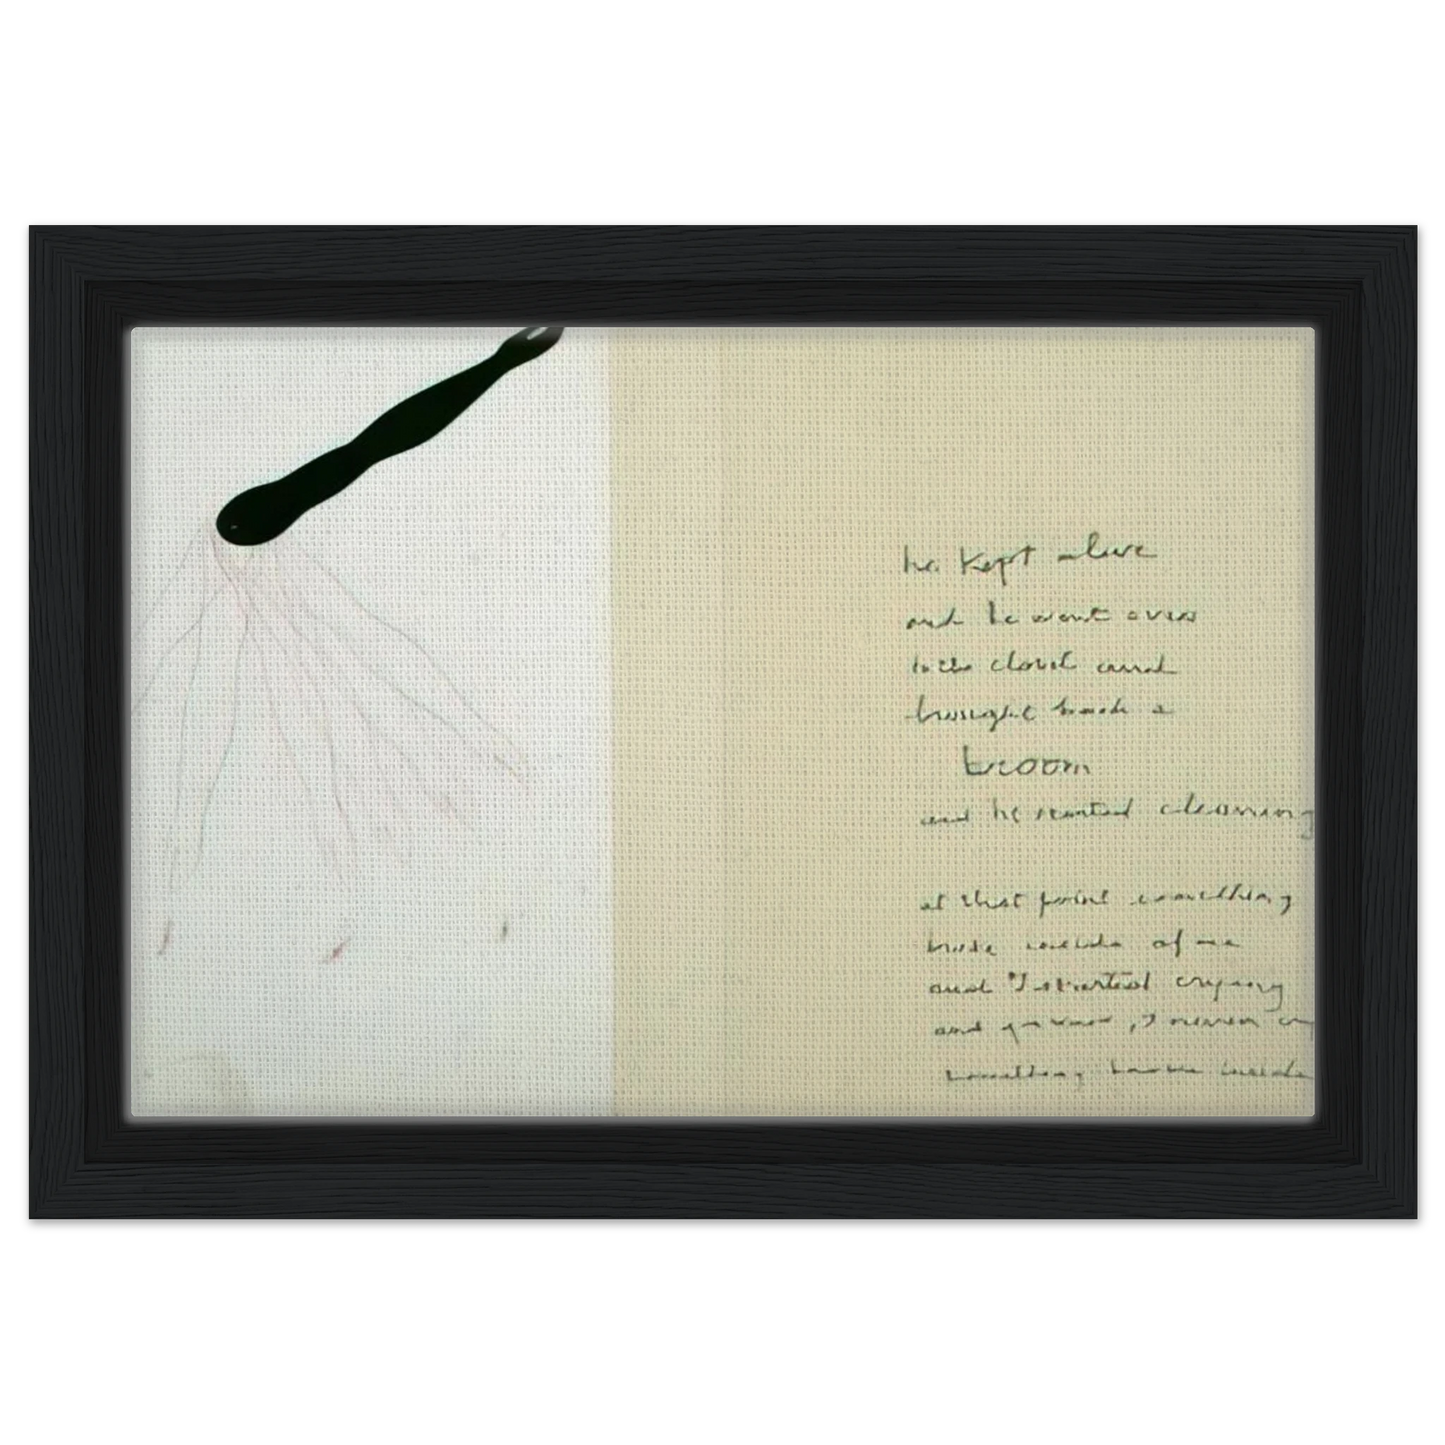 he kept alive
and he went over
to the closet and
brought back a
broom
and he started cleaning
at that point something
broke inside of me
and I started crying
and you know, I never
something broke inside